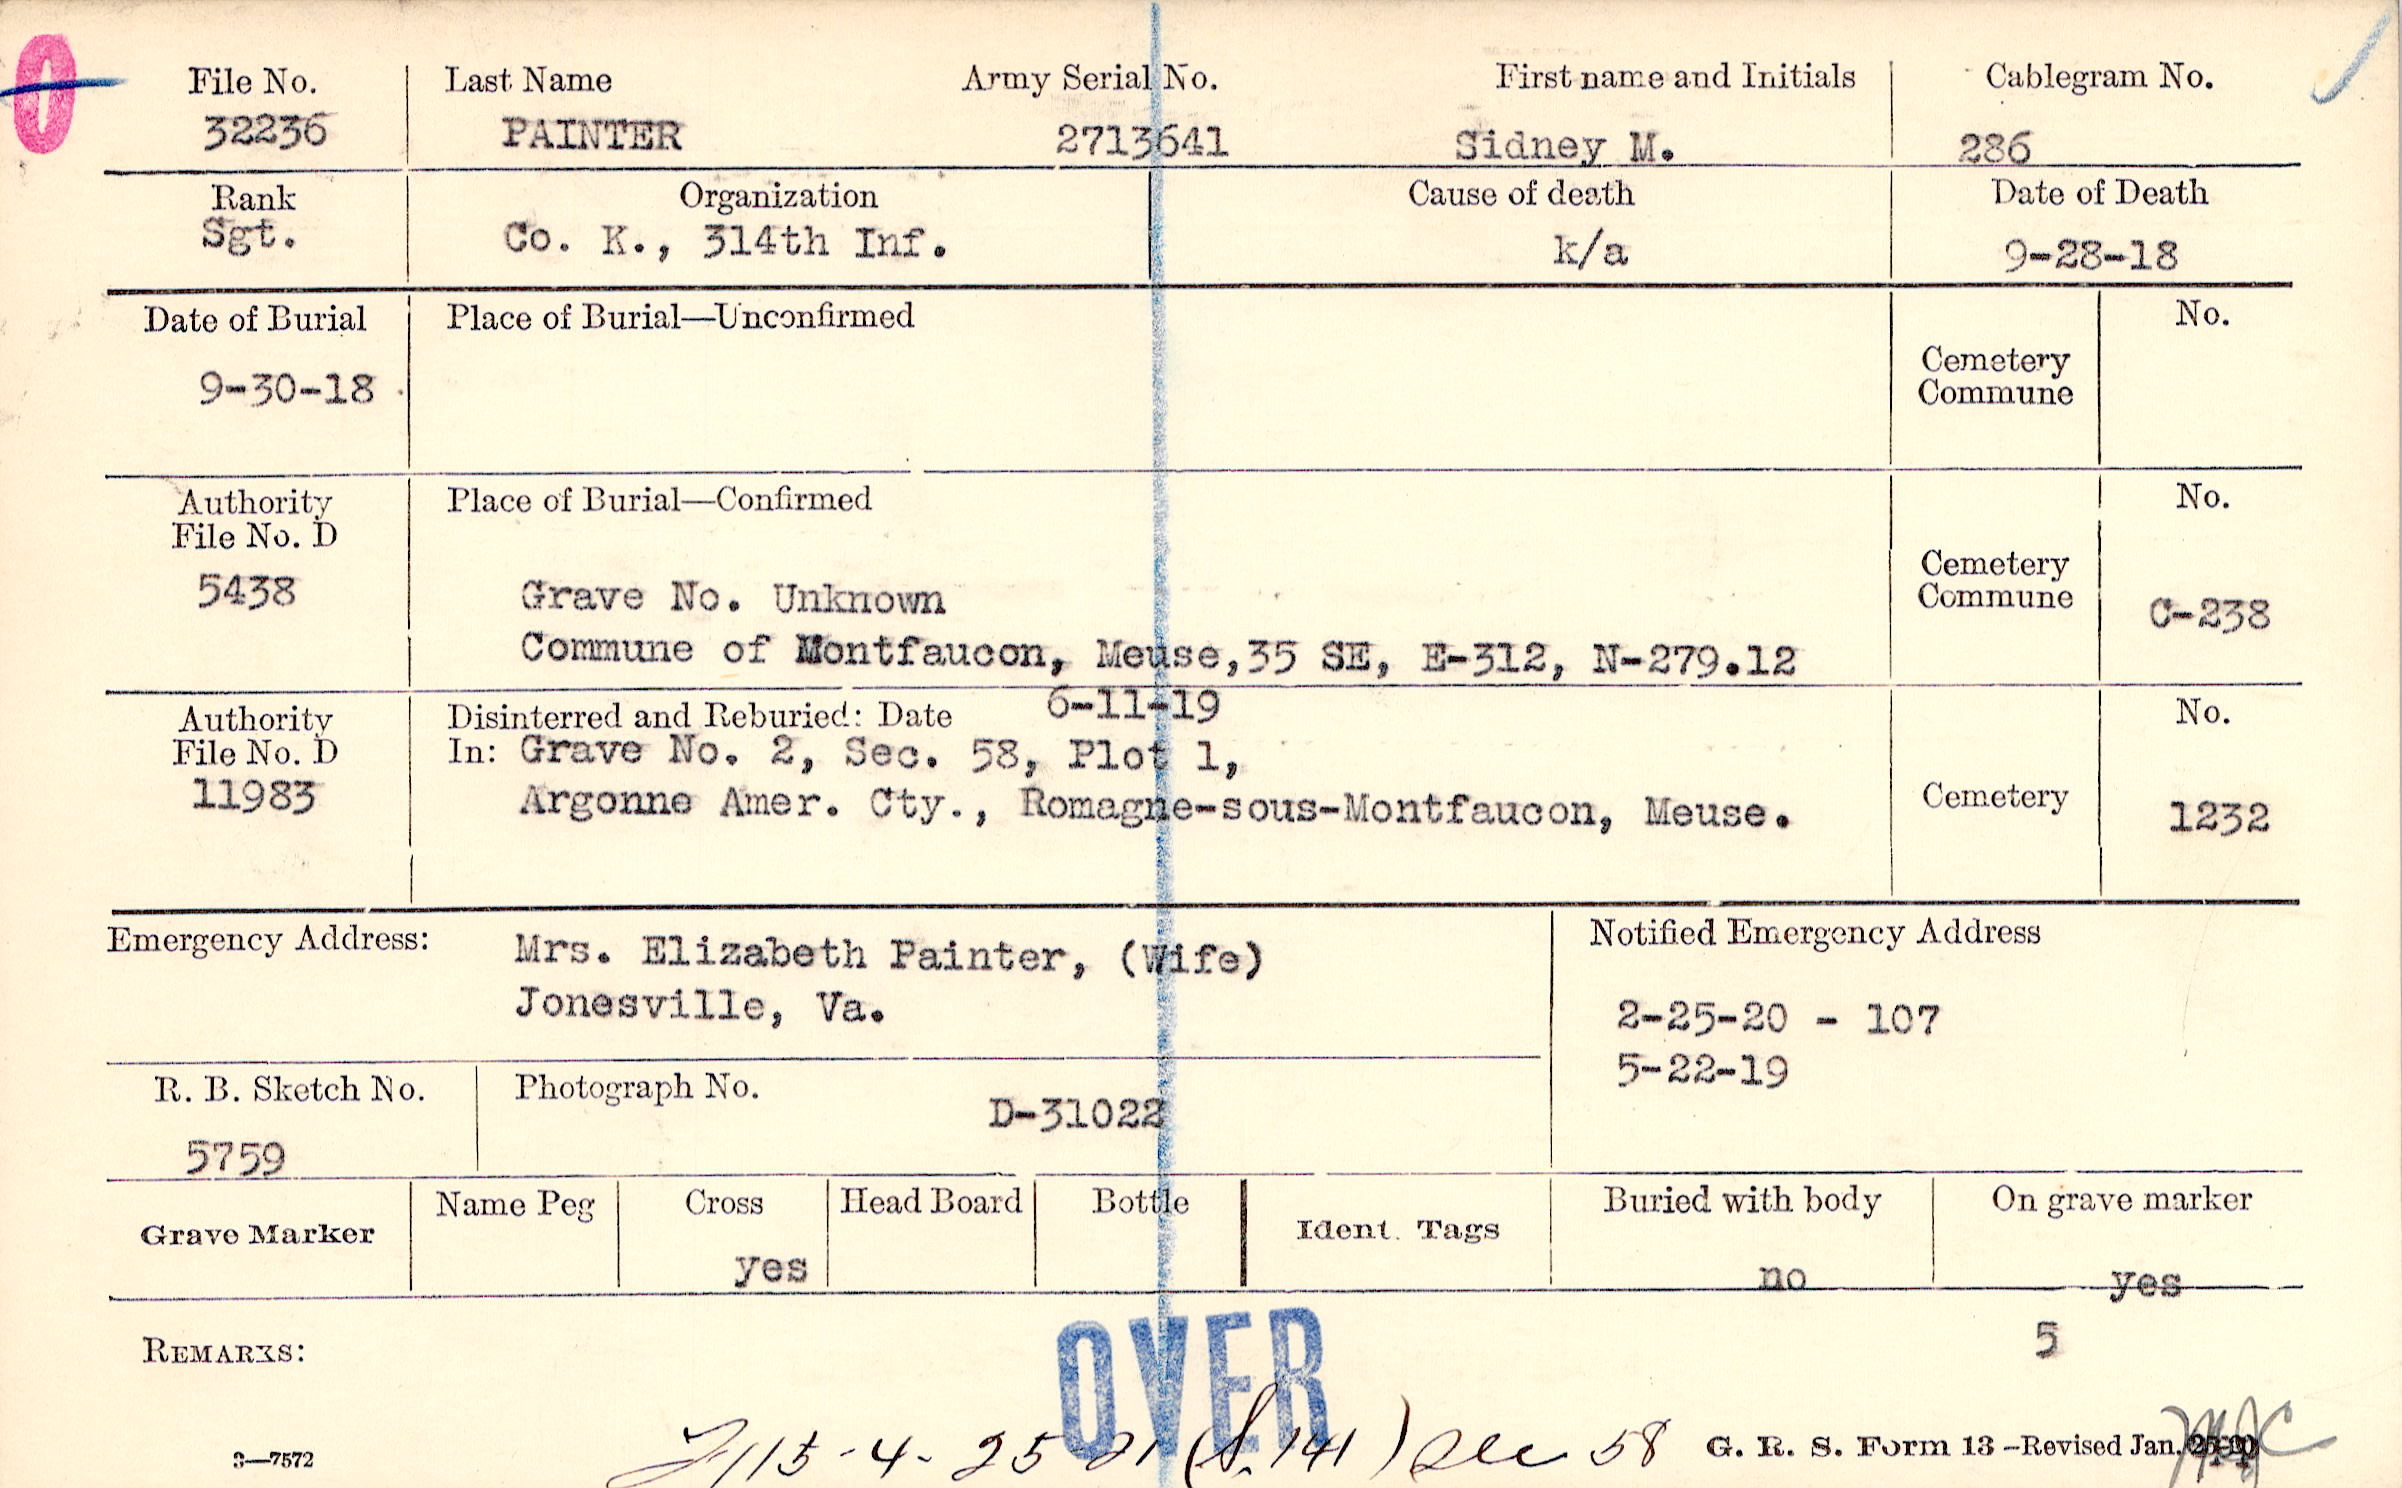 File No. Last Name Army Serial No. First name and Initials Cablegram No.
32236 PAINTER 2713641 Sidney M. 286
Rank Organization Cause of death Date of Death
Sgt. Co. K., 314th Inf. k/a 9-28-18
Date of Burial Place of Burial—Unconfirmed No.
9-30-18 Cemetery
Commune
Authority Place of Burial—Confirmed No.
File No. D
Cemetery
5438 Grave No. Unknown Commune C-238
Commune of Montfaucon, Meuse,35 SE, E-312, N-279.12
Authority Disinterred and Reburied: Date 6-11-19 No.
File No. D In: Grave No. 2, Sec. 58, Plot 1,
11983 Argonne Amer. Cty., Romagne-sous-Montfaucon, Meuse. Cemetery 1232
Emergency Address: Mrs. Elizabeth Painter, (Wife) Notified Emergency Address
Jonesville, Va. 2-25-20 - 107
5-22-19
R. B. Sketch No. Photograph No.
5759 D-31022
Grave Marker Name Peg Cross Head Board Bottle Ident. Tags Buried with body On grave marker
yes no yes
REMARKS: 5
OVER
115-4-25-21 (S. 141) Sec 58
3—7572 G. R. S. Form 13—Revised Jan.